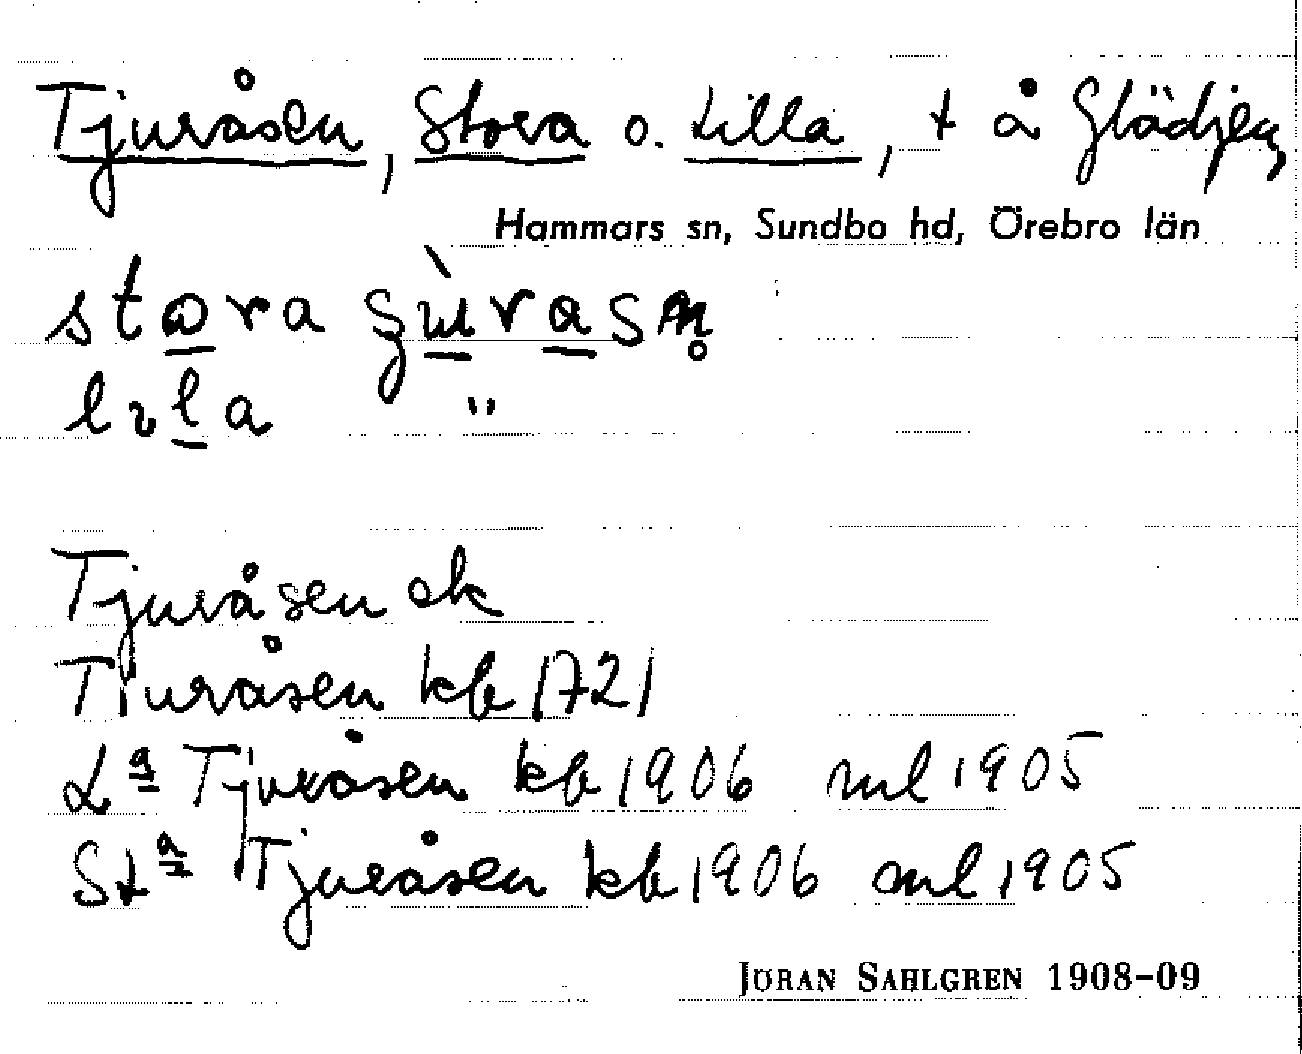 Tjuråsen, Stora o. Lilla, t å Glädjen
Hammars sn, Sundbo hd, Örebro län
lıla "
Tjuråsen ek
Tiuråsen kb 1721
La Tjuråsen kb 1906 ml 1905
Sta Tjuråsen kb 1906 ml 1905
JÖRAN SAHLGREN 1908-09